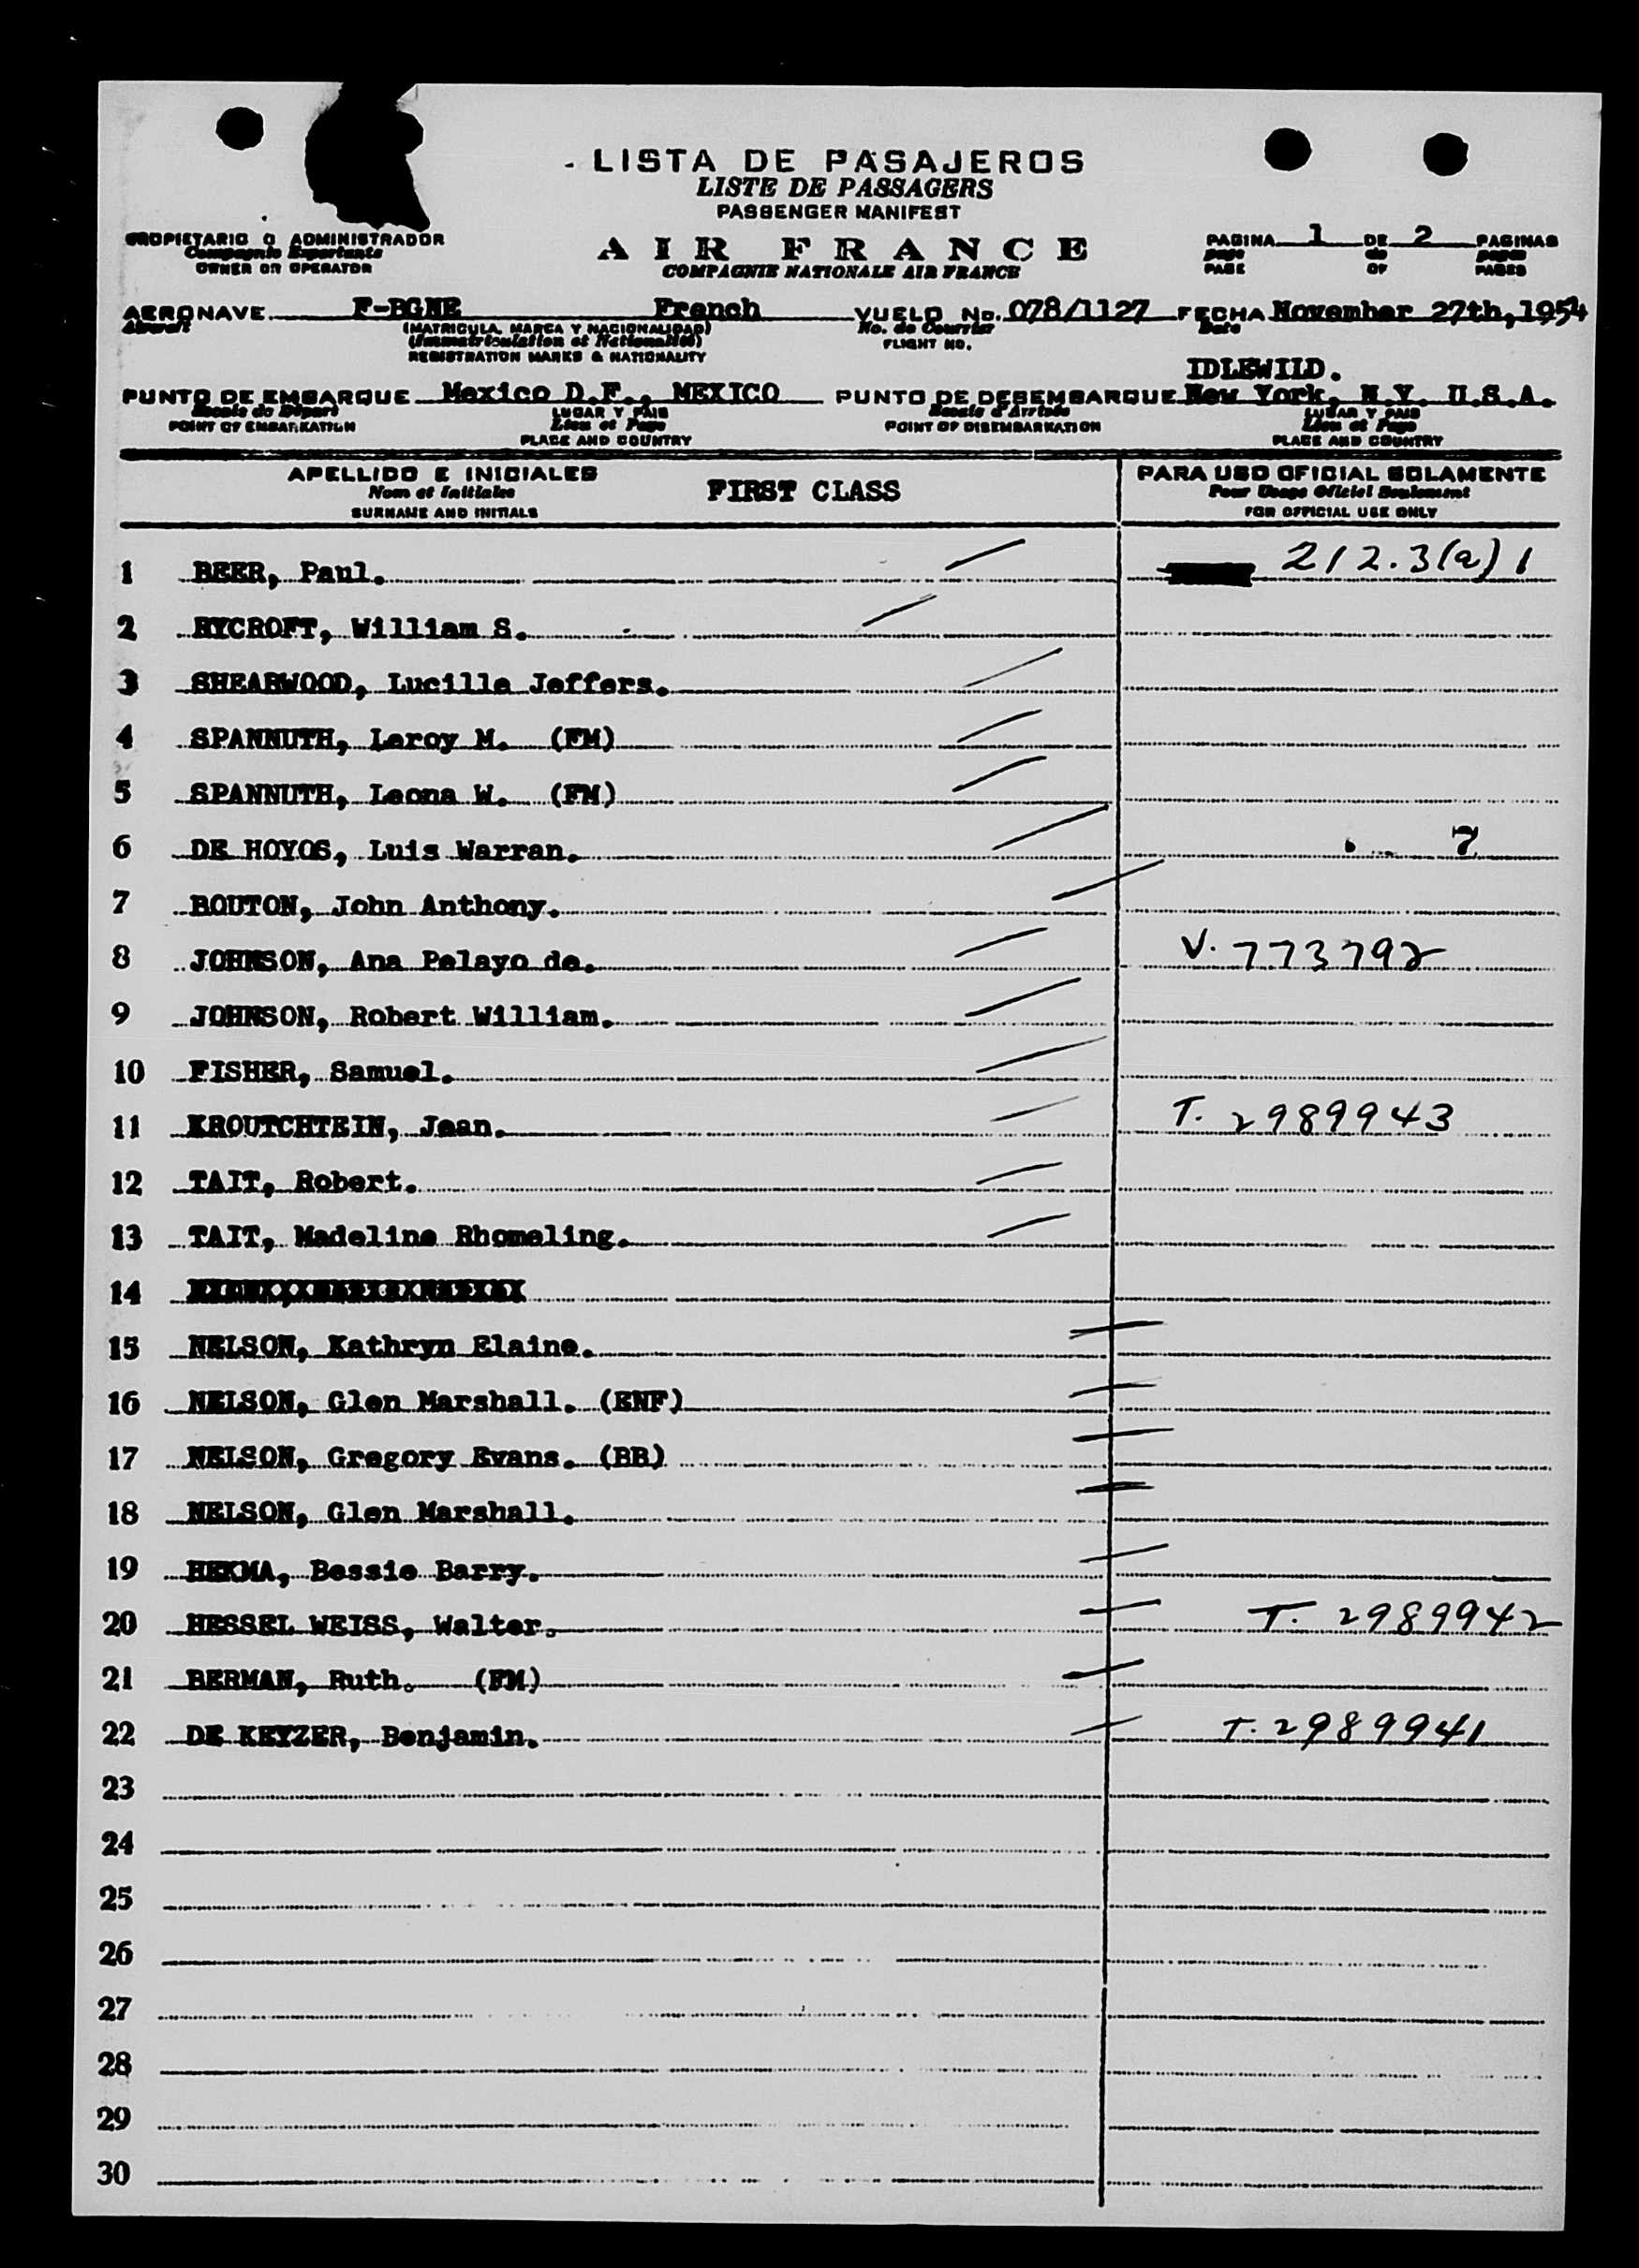 LISTA DE PASAJEROS
LISTE DE PASSAGERS
PASSENGER MANIFEST
PROPIETARIO O ADMINISTRADOR
Compagnie Exportante
OWNER OR OPERATOR
AIR FRANCE
COMPAGNIE NATIONALE AIR FRANCE
PAGINA 1 DE 2 PAGINAS
page de pages
PAGE OF PAGES
AERONAVE F-BGNE French VUELO No. 078/1127 FECHA November 27th, 1954
Aircraft (MATRICULA, MARCA Y NACIONALIDAD) No. de Courrier Date
(Immatriculation et Nationalité) FLIGHT NO.
REGISTRATION MARKS & NATIONALITY
IDLEWILD.
PUNTO DE EMBARQUE Mexico D.F., MEXICO PUNTO DE DESEMBARQUE New York, N.Y. U.S.A.
Escale de Départ LUGAR Y PAIS Escale d'Arrivée LUGAR Y PAIS
POINT OF EMBARKATION Lieu et Pays POINT OF DISEMBARKATION Lieu et Pays
PLACE AND COUNTRY PLACE AND COUNTRY
APELLIDO E INICIALES FIRST CLASS PARA USO OFICIAL SOLAMENTE
Nom et Initiales Pour Usage Officiel Seulement
SURNAME AND INITIALS FOR OFFICIAL USE ONLY
1 BEER, Paul. 212.3(a) 1
2 RYCROFT, William S.
3 SHEARWOOD, Lucille Jeffers.
4 SPANNUTH, Leroy M. (FM)
5 SPANNUTH, Leona W. (FM)
6 DE HOYOS, Luis Warran. 7
7 BOUTON, John Anthony.
8 JOHNSON, Ana Pelayo de. V. 773792
9 JOHNSON, Robert William.
10 FISHER, Samuel.
11 KROUTCHTEIN, Jean. T. 2989943
12 TAIT, Robert.
13 TAIT, Madeline Rhomeling.
14
15 NELSON, Kathryn Elaine.
16 NELSON, Glen Marshall. (ENF)
17 NELSON, Gregory Evans. (BB)
18 NELSON, Glen Marshall.
19 HEKMA, Bessie Barry.
20 HESSEL WEISS, Walter. T. 2989942
21 BERMAN, Ruth. (FM)
22 DE KEYZER, Benjamin. T. 2989941
23
24
25
26
27
28
29
30